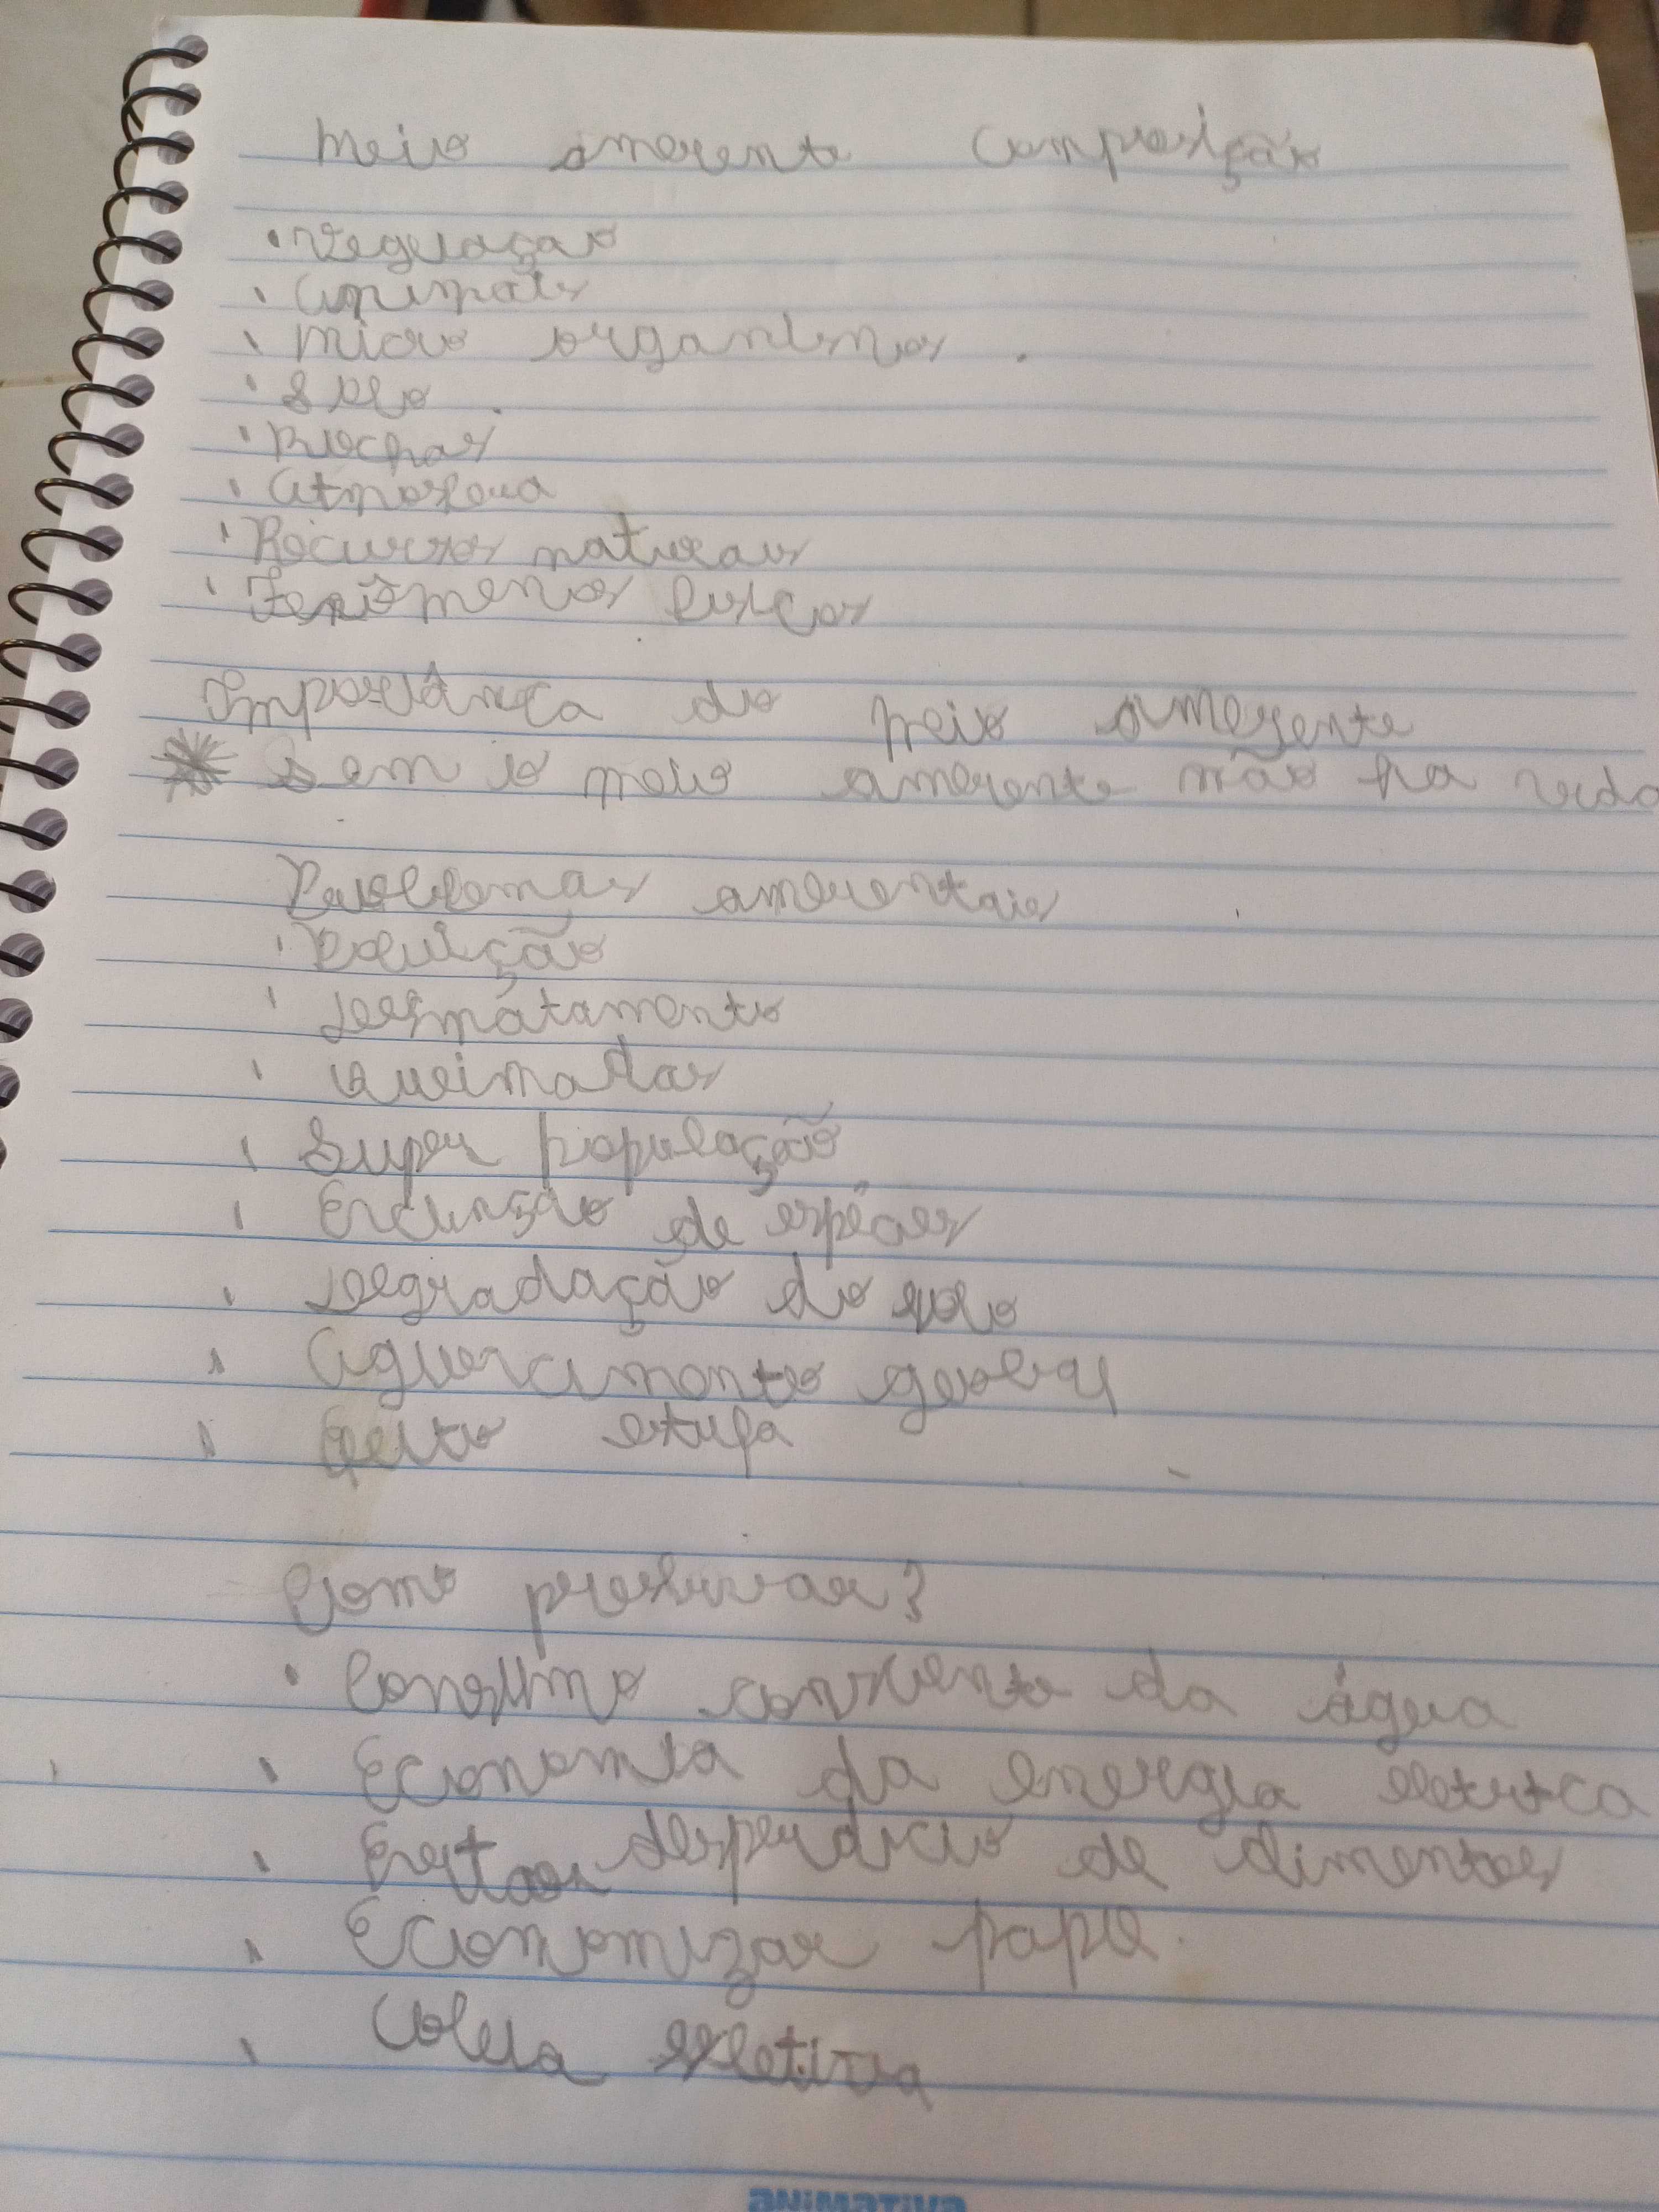 Meio ambiente Composição
• Vegetação
• Animais
• Micro organismos
• Solo
• Rochas
• Atmosfera
• Recursos naturais
• Fenômenos físicos
Importância do meio ambiente
* Sem o meio ambiente não ha vida
Problemas ambientais
• Poluição
• Desmatamento
• Queimadas
• Super população
• Extinção de espécies
• Degradação do solo
• Aquecimento geobal
• Efeito estufa
Como preservar?
• Consumo consciente da água
• Economia da energia eletrica
• Evitar desperdício de alimentos
• Economizar papel
• Coleta seletiva
ANIMATIVA